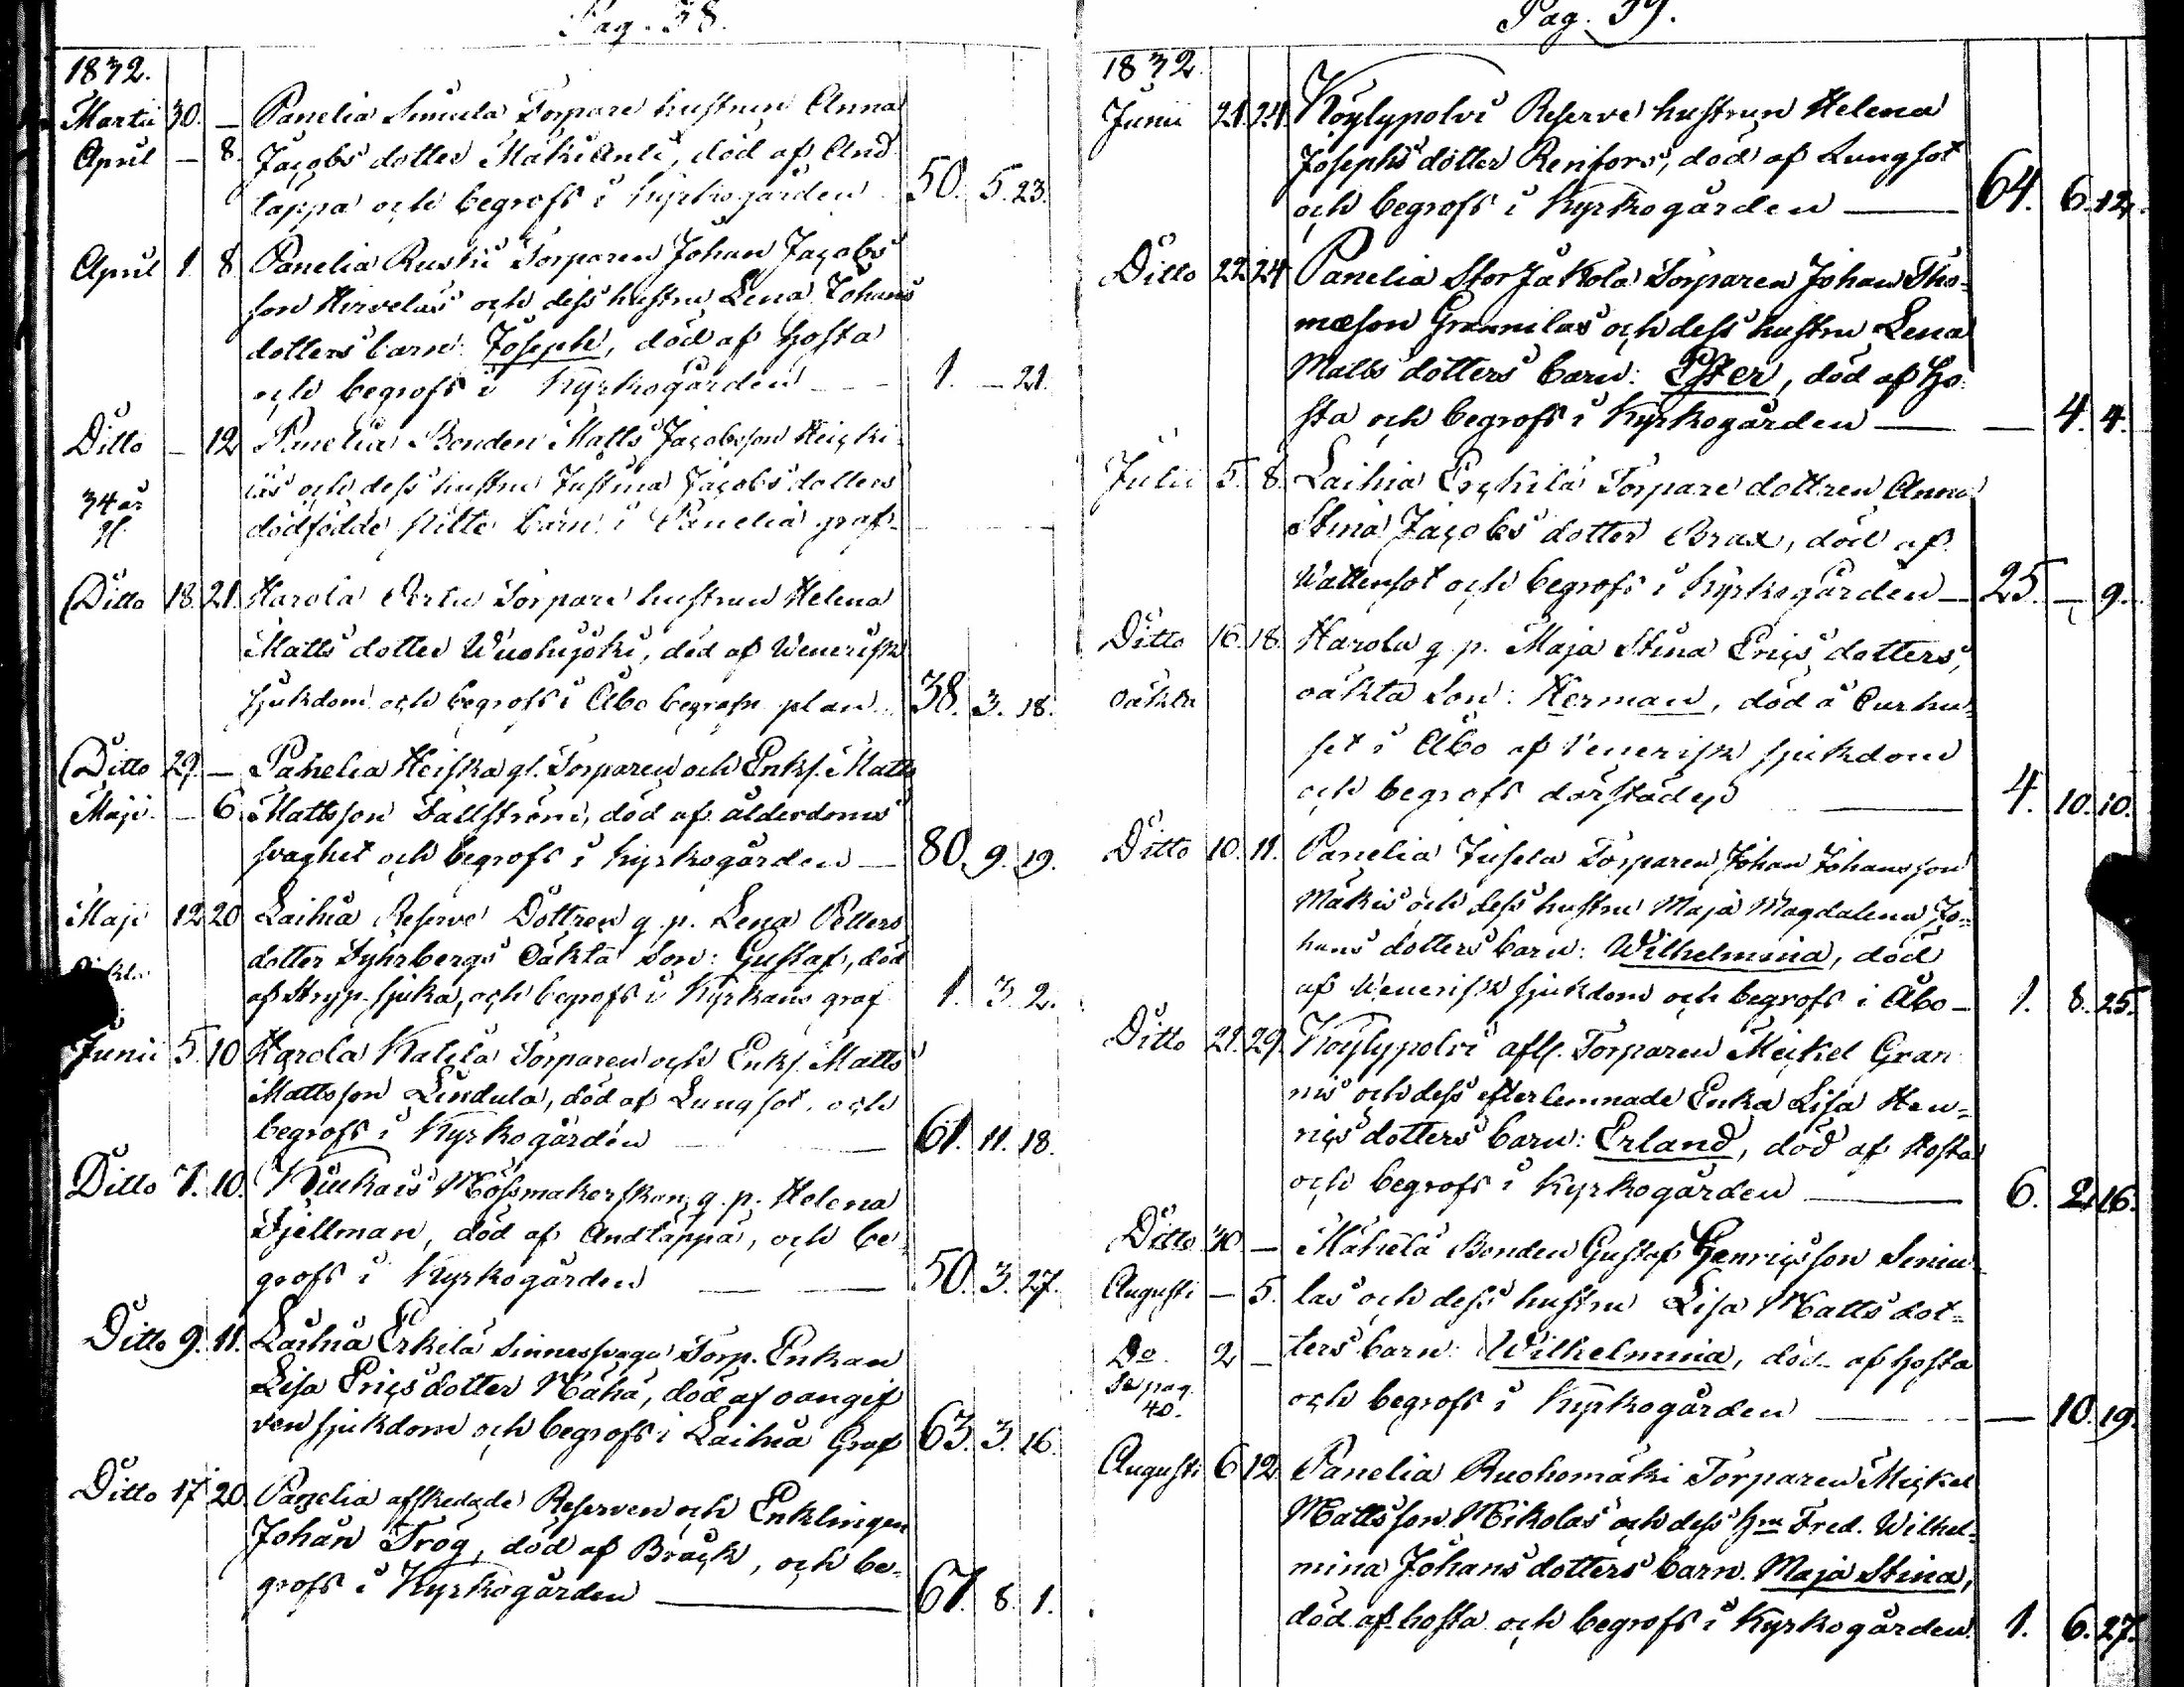 Pag. 38.
1832.
Martii 30. — Panelia Simula Torpare hustrun Anna
April — 8. Jacobs dotter MäkiAnti, död af And
täppa och begrofs i Kyrkogården 50. 5. 23.
April 1. 8 Panelia Ruski Torparen Johan Jacobs
son Hirvelas och dess hustru Lena Johans
dotters barn: Joseph, död af hosta
och begrofs i Kyrkogården - - - 1. — 21.
Ditto — 12 Panelia Bonden Matts Jacobsson Heicki
34 år
gl.
läs och dess hustru Justina Jacobs dotters
dödfödde flicke barn i Panelia graf
Ditto 18. 21. Harola Torpare hustrun Helena
Matts dotter Wuohijoki, död af Venerisk
sjukdom och begrofs i Åbo begrafn. plan 38. 3. 18.
Ditto 29. — Panelia Heiska gl. Torparen och Enkl. Matts
Maji — 6 Mattsson Dallström, död af ålderdoms
svaghet och begrofs i kyrkogården — 80. 9. 19.
Maji 12 20 Laihia Reserve Dottren q. p. Lena Petters
dotter Dyhrbergs Oäkta Son: Gustaf, död
af Stryp-sjuka, och begrofs i Kyrkans graf 1. 3 2.
Junii 5. 10 Harola Katila Torparen och Enkl. Matts
Mattsson Lindula, död af Lungsot, och
begrofs i Kyrkogården 61. 11. 18.
Ditto 7. 10. Kiukais Mössmakerskan q. p. Helena
Fjellman, död af Andtäppa, och be
grofs i Kyrkogården 50. 3. 27.
Ditto 9. 11. Laihia Erkilä Sinnessvaga Torp. Enkan
Lisa Erics dotter Mähä, död af oangif
ven sjukdom och begrofs i Laihia Graf 63. 3. 16.
Ditto 17 20. Panelia afskedade Reserven och Enklingen
Johan Trög, död af Bråck, och be-
grofs i Kyrkogården 67. 8. 1.
Pag. 39.
1832.
Junii 21. 24. Köylypolvi Reserve hustrun Helena
Josephs dotter Renfors, död af Lungsot
och begrofs i Kyrkogården 64. 6. 12.
Ditto 22 24 Panelia Stor Jakola Torparen Johan Tho-
mæson Grannilas och dess hustru Lena
Matts dotters barn: Ester, död af ho-
sta och begrofs i Kyrkogården — — 4. 4.
Julii 5. 8. Laihia Erckilä Torpare dottren Anna
Stina Jacobs dotter Brax, död af
Wattensot och begrofs i Kyrkogården — 25. — 9.
Ditto 16. 18. Harola q. p. Maja Stina Erics dotters,
oäkta oäkta Son: Herman, död å Curhu-
set i Åbo af Venerisk sjukdom
och begrofs därstädes 4. 10. 10.
Ditto 10. 11. Panelia Jusela Torparen Johan Johansson
Mäkis och dess hustru Maja Magdalena Jo-
hans dotters barn: Wilhelmina, död
af Venerisk sjukdom och begrofs i Åbo — 1. 8. 25.
Ditto 21. 29. Köylypolvi afl. Torparen Mickel Gran
nis och dess efterlemnade Enka Lisa Hen-
rics dotters barn: Erland, död af Hosta
och begrofs i Kyrkogården 6. 2. 16.
Ditto 30 — Mähelä Bonden Gustaf Henricsson Simu
Augusti — 5. las och dess hustru Lisa Matts dot-
Do 2 — ters barn: Wilhelmina, död af hosta
se pag.
40.
och begrofs i Kyrkogården — 10. 19.
Augusti 6 12 Panelia Ruohomäki Torparen Mickel
Mattsson Mikolas och dess hru Fred. Wilhel-
mina Johans dotters barn. Maja Stina,
död af hosta och begrofs i Kyrkogården. 1. 6. 27.